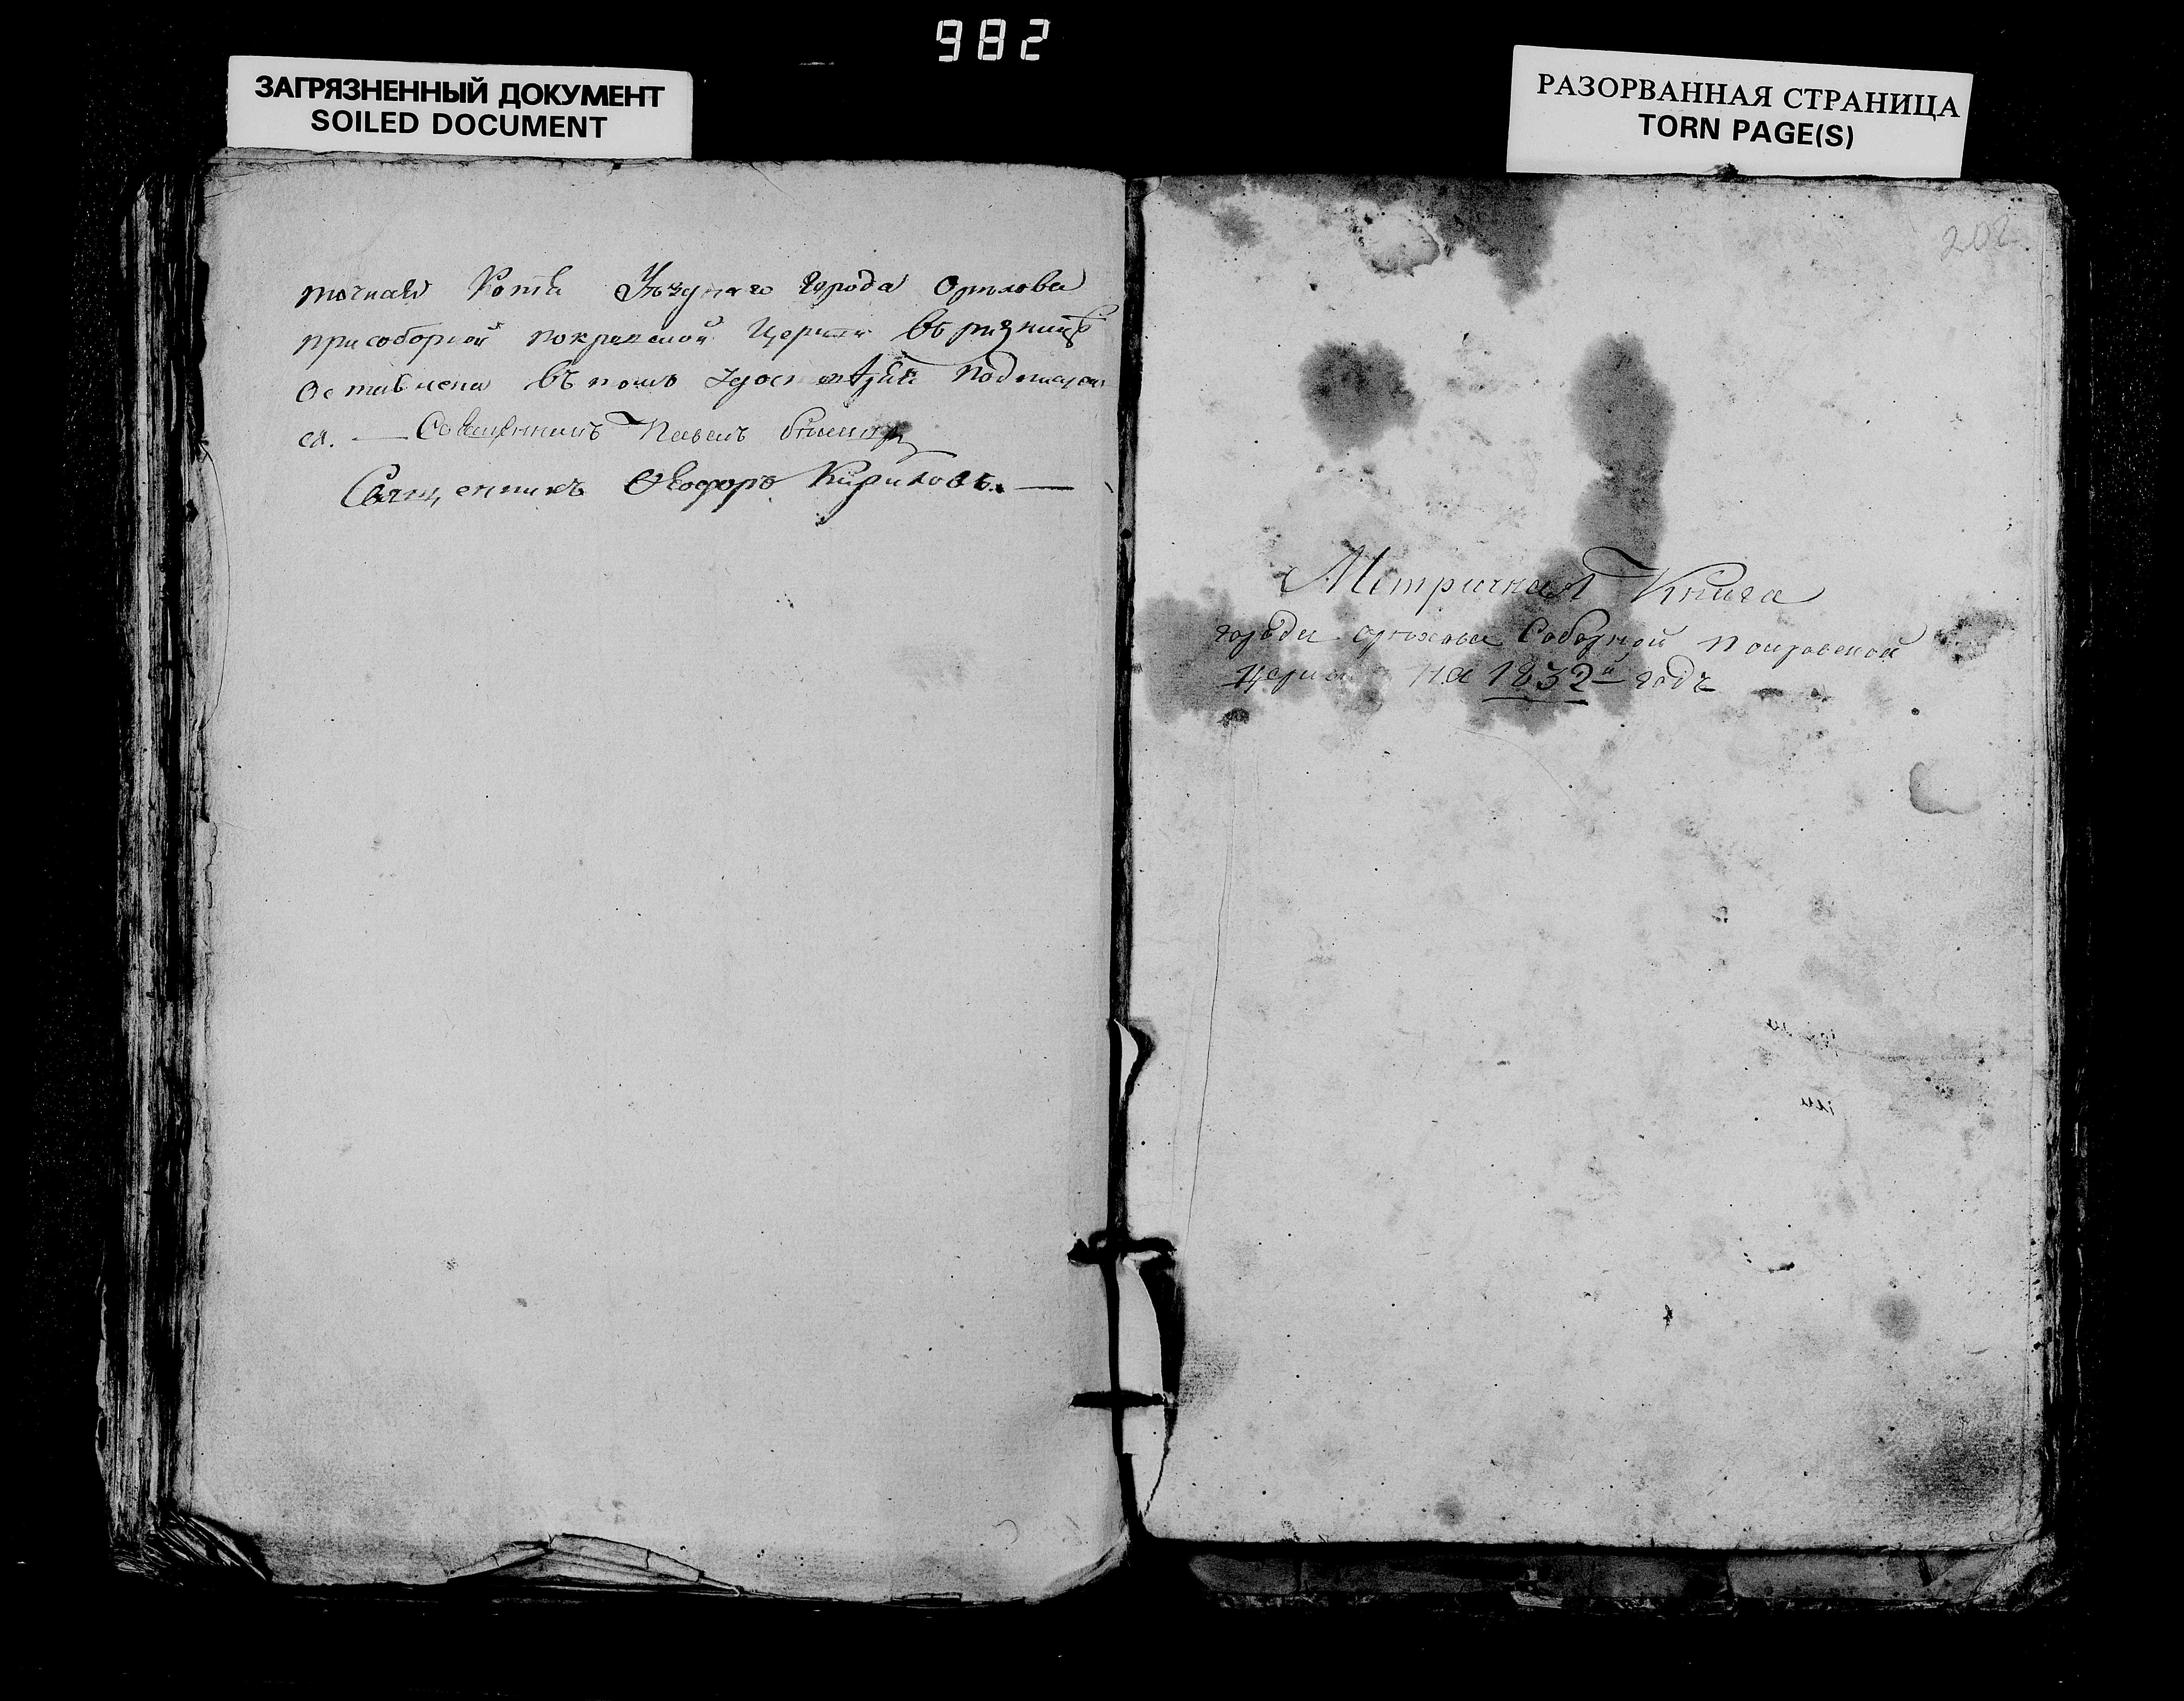 982
ЗАГРЯЗНЕННЫЙ ДОКУМЕНТ
SOILED DOCUMENT
РАЗОРВАННАЯ СТРАНИЦА
TORN PAGE(S)
точная Копія Уѣзднаго города Орѣхова
присоборной покровской Церкви въ ризницѣ
Оставлена въ томъ подписуем
ся. — Священникъ Павелъ
Священникъ Ѳеодоръ Кириловъ. —
208
Метричная Книга
города орѣхова Соборной покровской
Церкви на 1832й годъ